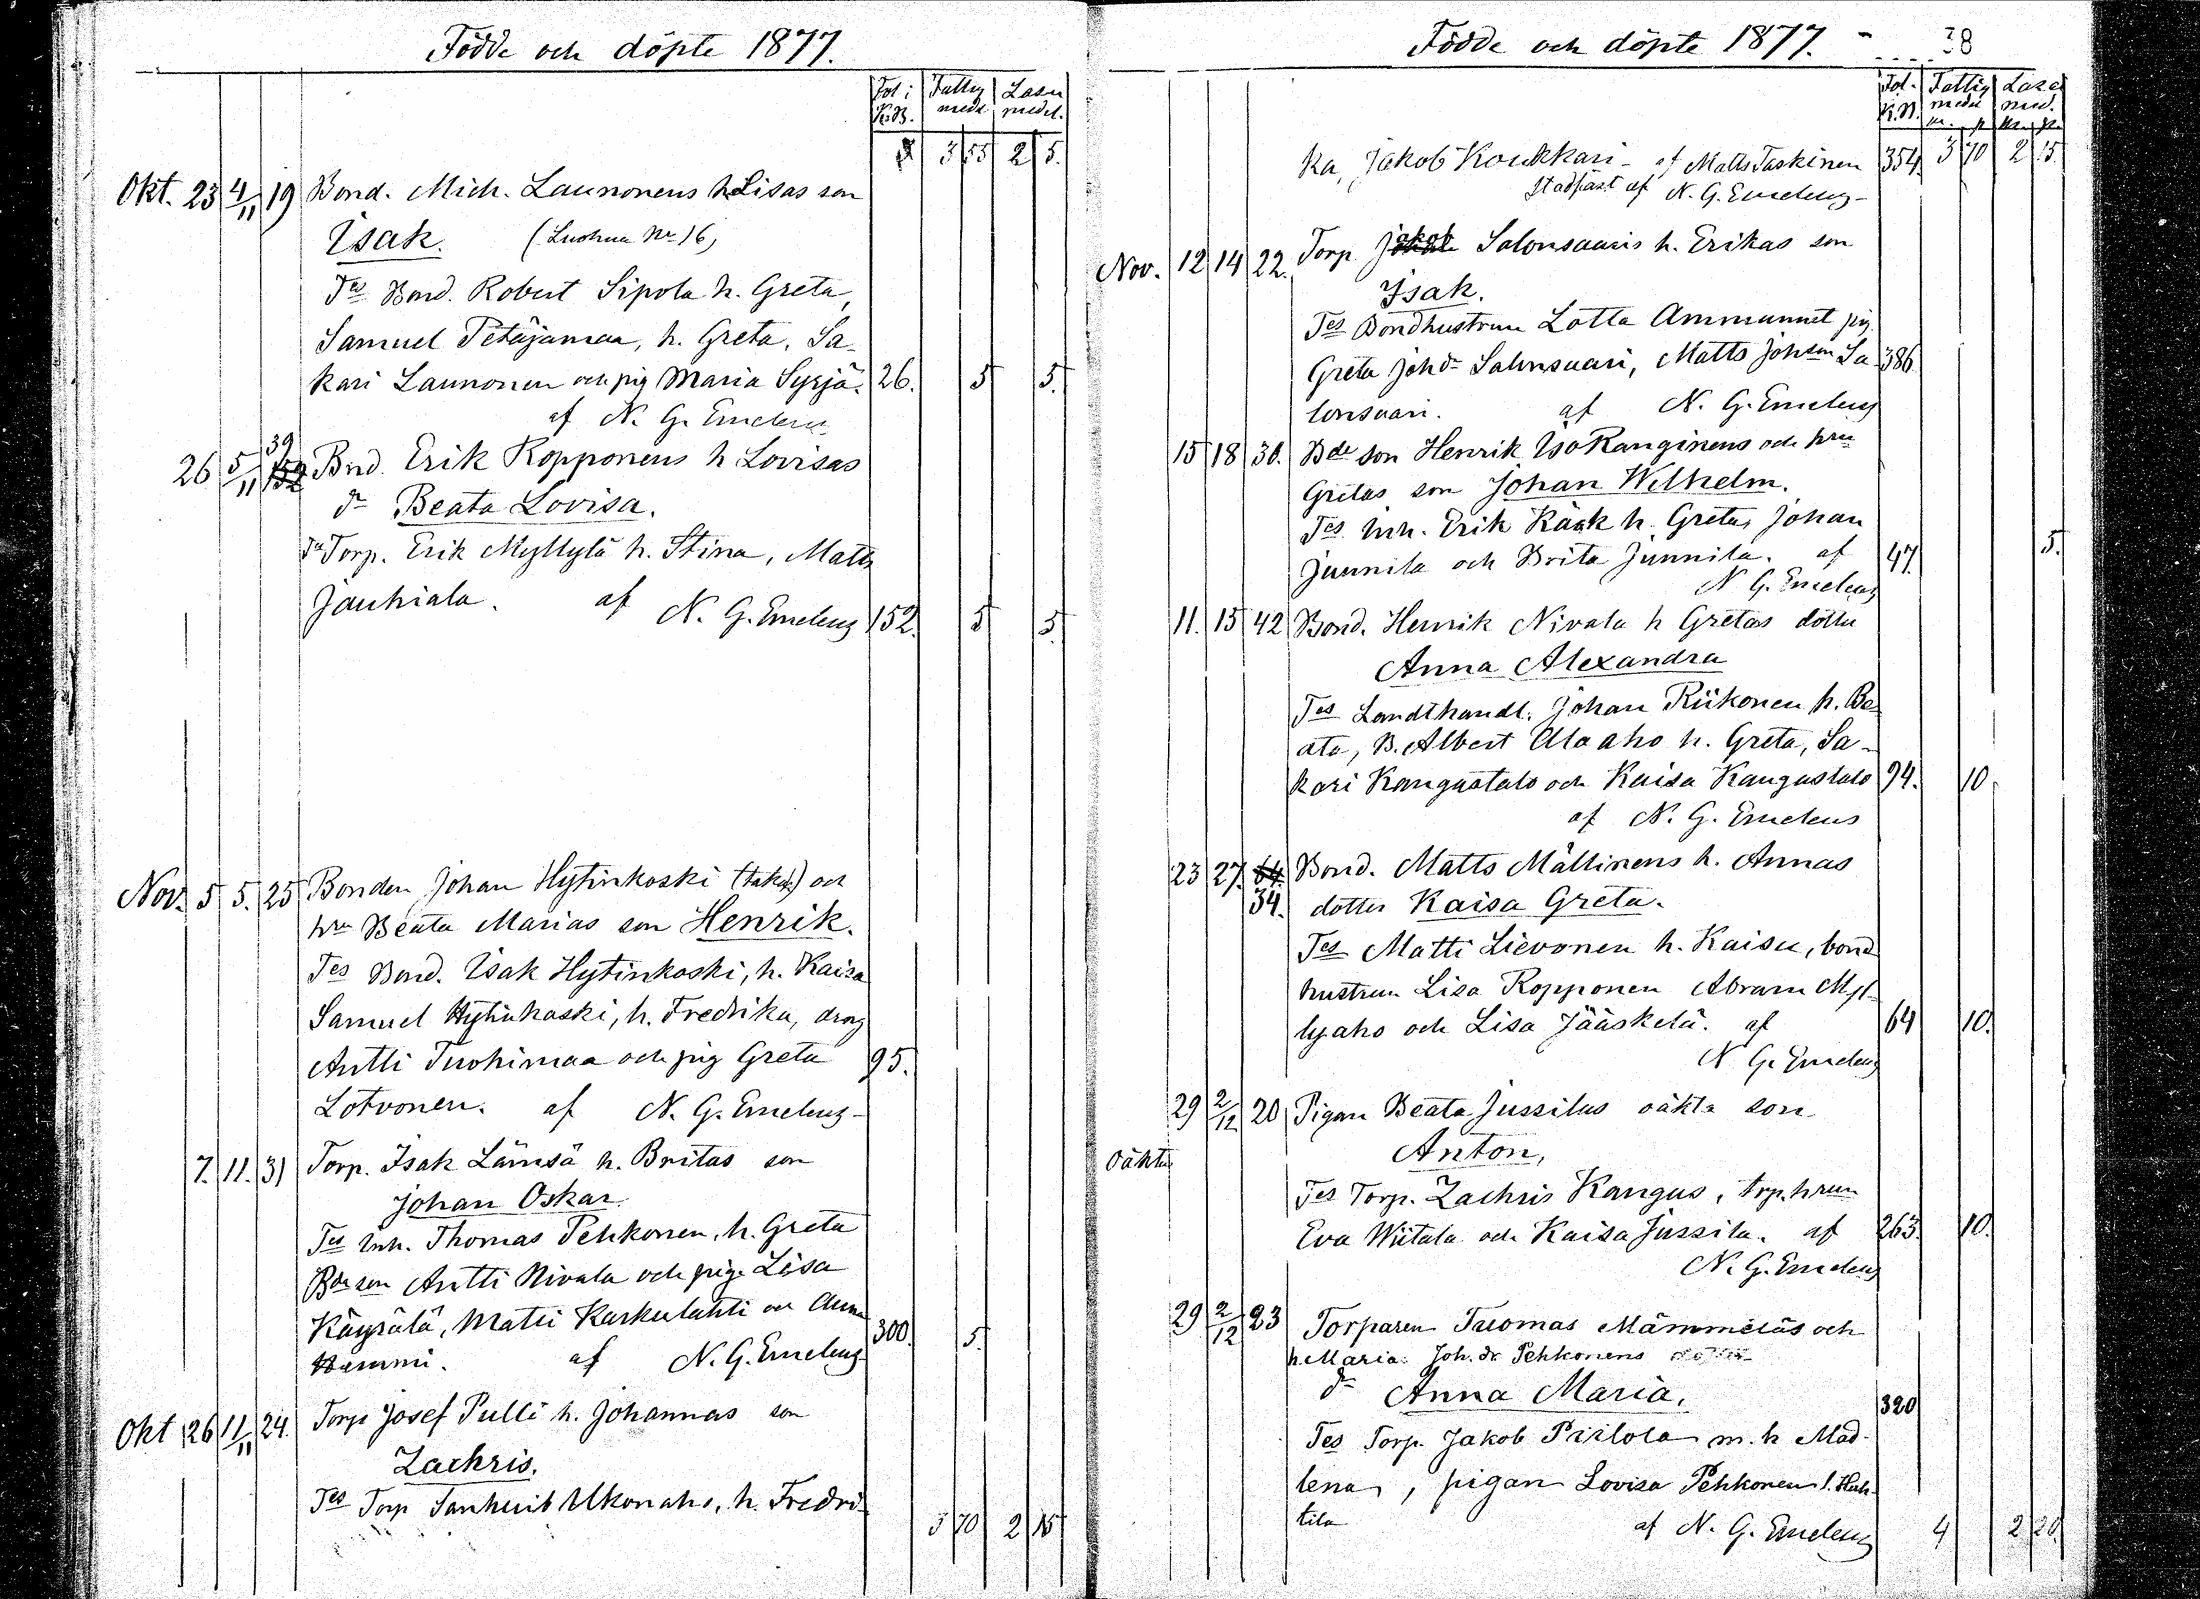 Födde och döpte 1877.
Fol: Fattig Läsu
K.B. medl. medel.
3 55 2 5.
Okt. 23 4/11 19 Bond. Mich. Launonens h Lisas son
Isak. (Luohua No 16)
Tes Bond. Robert Sipola h. Greta,
Samuel Petäjämaa, h. Greta, Sa-
kari Launonen och pig Maria Syrjä. 26. 5 5.
af N. G. Emeleus
39
26 5/11 Bnd. Erik Kopponens h Lovisas
dr Beata Lovisa.
Tes Torp. Erik Myllylä h. Stina, Matts
Jauhiala. af N. G. Emeleus 152. 5 5.
Nov. 5 5. 25 Bonden Johan Hytinkoski och
hru Beata Marias son Henrik.
Tes Bond. Isak Hytinkoski, h. Kaisa
Samuel Hytinkoski, h. Fredrika, dräng
Antti Tuohimaa och pig Greta 95.
Lotvonen. af N. G. Emeleus
7. 11. 31 Torp. Isak Lämsä h. Britas son
Johan Oskar
Tes Inh. Thomas Pehkonen, h. Greta
Bde son Antti Nivala och pig. Lisa
Käyrälä, Matti Karkulahti och Anna
Hammi. af N. G. Emeleus 300 5.
Okt 26 11/11 24. Torp Josef Pulli h. Johannas son
Zachris.
Tes Torp Tanhuit Ukonaho, h. Fredri-
3 70 2 15
Födde och döpte 1877. 38
Fol. Fattig Läse
K.B. medel med.
m. p m. p.
ka, Jakob Koukkari - af Matts Taskinen 354. 3 70 2 15.
Stadfäst af N. G. Emeleus
Nov. 12 14 22. Torp. Jakob Salonsaaris h. Erikas son
Isak.
Tes Bondhustrun Lotta Ammunnet pig.
Greta Johdr Salonsaari, Matts Johson Sa- 386
lonsaari. af N. G. Emeleus
15 18 30. Bde son Henrik IsoKanginens och hru
Gretas son Johan Wilhelm.
Tes Inh. Erik Käsk h. Greta, Johan
Junnila och Brita Junnila. af 47. 5.
N G. Emeleus
11. 15 42 Bond. Henrik Nivala h Gretas dotter
Anna Alexandra
Tes Landthandl. Johan Riikonen h. Be-
ata, B. Albert Alaaho h. Greta, Sa-
kari Kangastalo och Kaisa Kangastalo 94. 10.
af N. G. Emeleus
23 27. 64. Bond. Matts Mällinens h. Annas
34. dotter Kaisa Greta.
Tes Matti Lievonen h. Kaisa, bond
hustrun Lisa Kopponen Abram Myl-
lyaho och Lisa Jääskelä. af 64 10.
N G. Emeleus
29 2/12 20 Pigan Beata Jussilas oäkta son
Oäkta Anton,
Tes Torp. Zachris Kangus, trp.hrun
Eva Wiitala och Kaisa Jussila. af 263. 10.
N. G. Emeleus
29 2/12 23 Torparen Tuomas Mämmeläs och
h. Maria Joh. dr Pehkonens
dr Anna Maria. 320
Tes Torp. Jakob Piilola m. h Mad-
lena, pigan Lovisa Pehkonen l. Huh-
tila af N. G. Emeleus 4 2 20